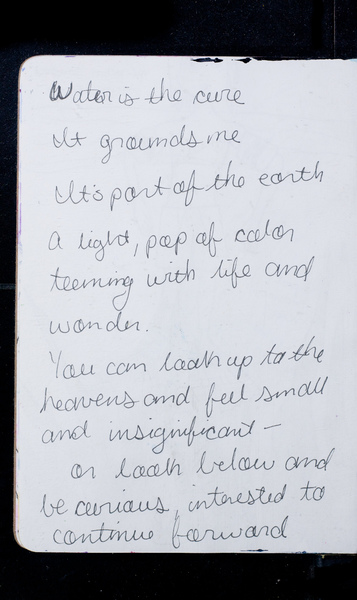 Water is the cure
It grounds me
It's part of the earth
A light, pop of color
teeming with life and
wonder.
You can look up to the
heavens and feel small
and insignificant —
or look below and
be curious, interested to
continue forward